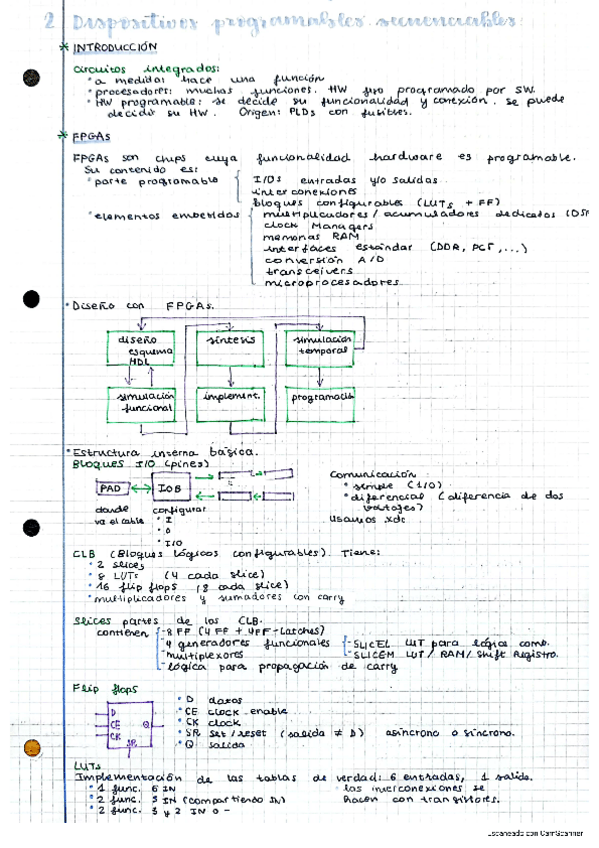 2 Dispositivos programables secuenciables.
* INTRODUCCIÓN
Circuitos integrados:
• a medida: hace una función
• procesadores: muchas funciones. HW fijo programado por SW.
• HW programable: se decide su funcionalidad y conexión. se puede
decidir su HW. Origen: PLDs con fusibles.
* FPGAs
FPGAs son chips cuya funcionalidad hardware es programable.
Su contenido es:
• parte programable
I/Os entradas y/o salidas
interconexiones
bloques configurables (LUTs + FF)
• elementos embebidos
multiplicadores / acumuladores dedicados (DSP
clock Managers
memorias RAM
interfaces estándar (DDR, PCI, ...)
conversión A/D
transceivers
microprocesadores
• Diseño con FPGAs.
diseño esquema HDL
síntesis
simulación temporal
simulación funcional
implement.
programación
• Estructura interna básica.
Bloques I/O (pines)
PAD
IOB
donde va el cable
configurar
• I
• O
• I/O
Comunicación
• simple (1/0)
• diferencial (diferencia de dos
voltajes)
Usamos .xdc
CLB (Bloques lógicos configurables). Tiene:
• 2 slices
• 8 LUTs (4 cada slice)
• 16 flip flops (8 cada slice)
• multiplicadores y sumadores con carry
Slices partes de los CLB.
contienen
- 8 FF (4 FF + 4 FF-Latches)
- 4 generadores funcionales
- SLICEL LUT para lógica comb.
- SLICEM LUT / RAM / Shift Registro.
- multiplexores
- lógica para propagación de carry
Flip flops
D
CE
CK
Q
SR
• D datos
• CE clock enable
• CK clock
• SR set / reset (salida ≠ D) asíncrono o síncrono.
• Q salida
LUTs
Implementación de las tablas de verdad: 6 entradas, 1 salida.
• 1 func. 6 IN
• 2 func. 5 IN (compartiendo IN)
• 2 func. 3 y 2 IN o -
las interconexiones se
hacen con transistores.
Escaneado con CamScanner